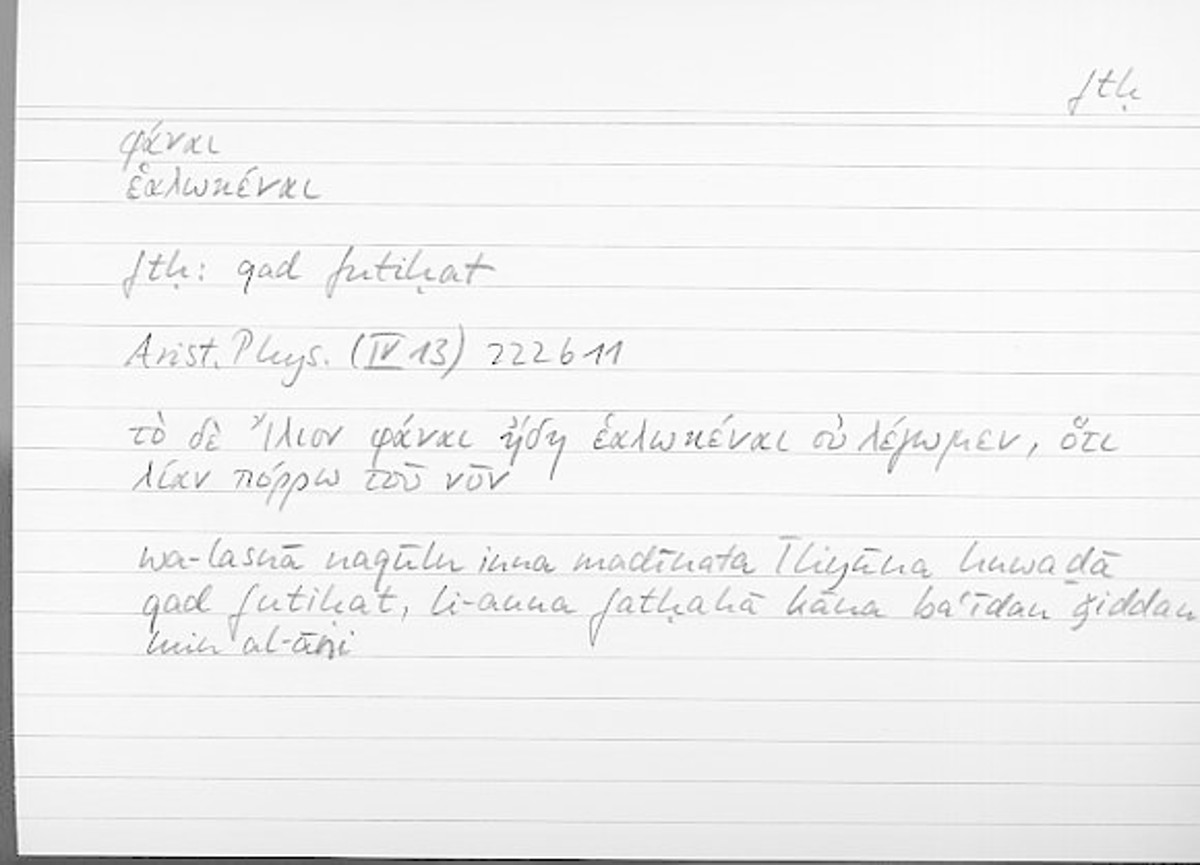 ftḥ
φάναι
ἑαλωκέναι
ftḥ: qad futiḥat
Arist. Phys. (IV 13) 222b11
τὸ δὲ Ἴλιον φάναι ἤδη ἑαλωκέναι οὐ λέγωμεν, ὅτι
λίαν πόρρω τοῦ νῦν
wa-lasnā naqūlu inna madīnata Īliyūna huwaḏā
qad futiḥat, li-anna fatḥahā kāna baʿīdan ǧiddan
min al-āni